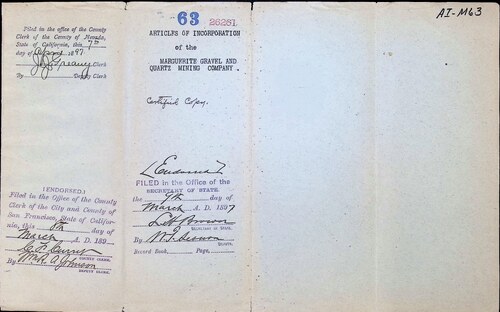 Filed in the office of the County
Clerk of the County of Nevada,
State of California, this 7th
day of April 1897
Clerk
By Deputy Clerk
(ENDORSED.)
Filed in the Office of the County
Clerk of the City and County of
San Francisco, State of Califor-
nia, this 8th day of
March A. D. 189
C. F. Curry
COUNTY CLERK.
By Wm. R. A. Johnson
DEPUTY CLERK.
63 26261
ARTICLES OF INCORPORATION
of the
MARGUERITE GRAVEL AND
QUARTZ MINING COMPANY.
Certified Copy.
(Endorsed)
FILED in the Office of the
SECRETARY OF STATE.
the 9th day of
March A. D. 1897
L. H. Brown
Secretary of State.
By
Deputy.
Record Book, Page,
AI-M63